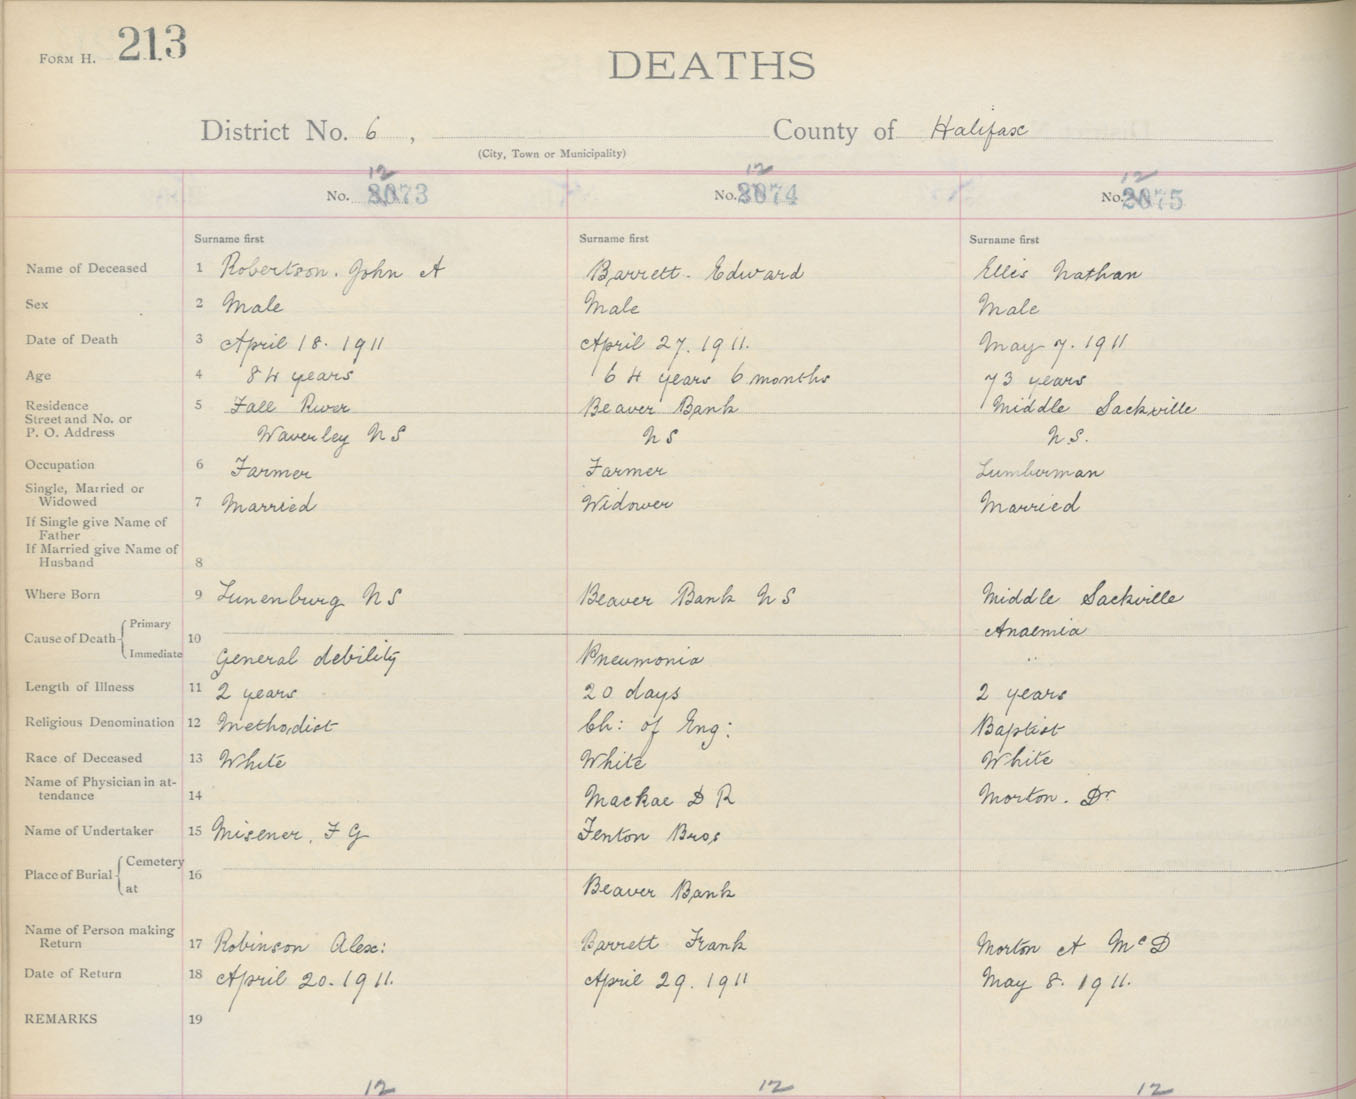 FORM H. 213
DEATHS
District No. 6 , County of Halifax
(City, Town or Municipality)
12 12 12
No. 2073 No. 2074 No. 2075
Surname first Surname first Surname first
Name of Deceased 1 Robertson. John A Barrett. Edward Ellis Nathan
Sex 2 Male Male Male
Date of Death 3 April 18. 1911 April 27. 1911. May 7. 1911
Age 4 84 years 64 years 6 months 73 years
Residence 5 Fall River Beaver Bank Middle Sackville
Street and No. or
P. O. Address Waverley NS NS N.S.
Occupation 6 Farmer Farmer Lumberman
Single, Married or
Widowed 7 Married Widower Married
If Single give Name of
Father
If Married give Name of
Husband 8
Where Born 9 Lunenburg NS Beaver Bank NS Middle Sackville
Cause of Death Primary 10 Anaemia
Immediate General debility Pneumonia "
Length of Illness 11 2 years 20 days 2 years
Religious Denomination 12 Methodist Ch: of Eng: Baptist
Race of Deceased 13 White White White
Name of Physician in at-
tendance 14 Mackae D R Morton. Dr
Name of Undertaker 15 Misener. F G Fenton Bros
Place of Burial Cemetery 16
at Beaver Bank
Name of Person making
Return 17 Robinson Alex: Barrett Frank Morton A McD
Date of Return 18 April 20. 1911. April 29. 1911 May 8. 1911.
REMARKS 19
12 12 12